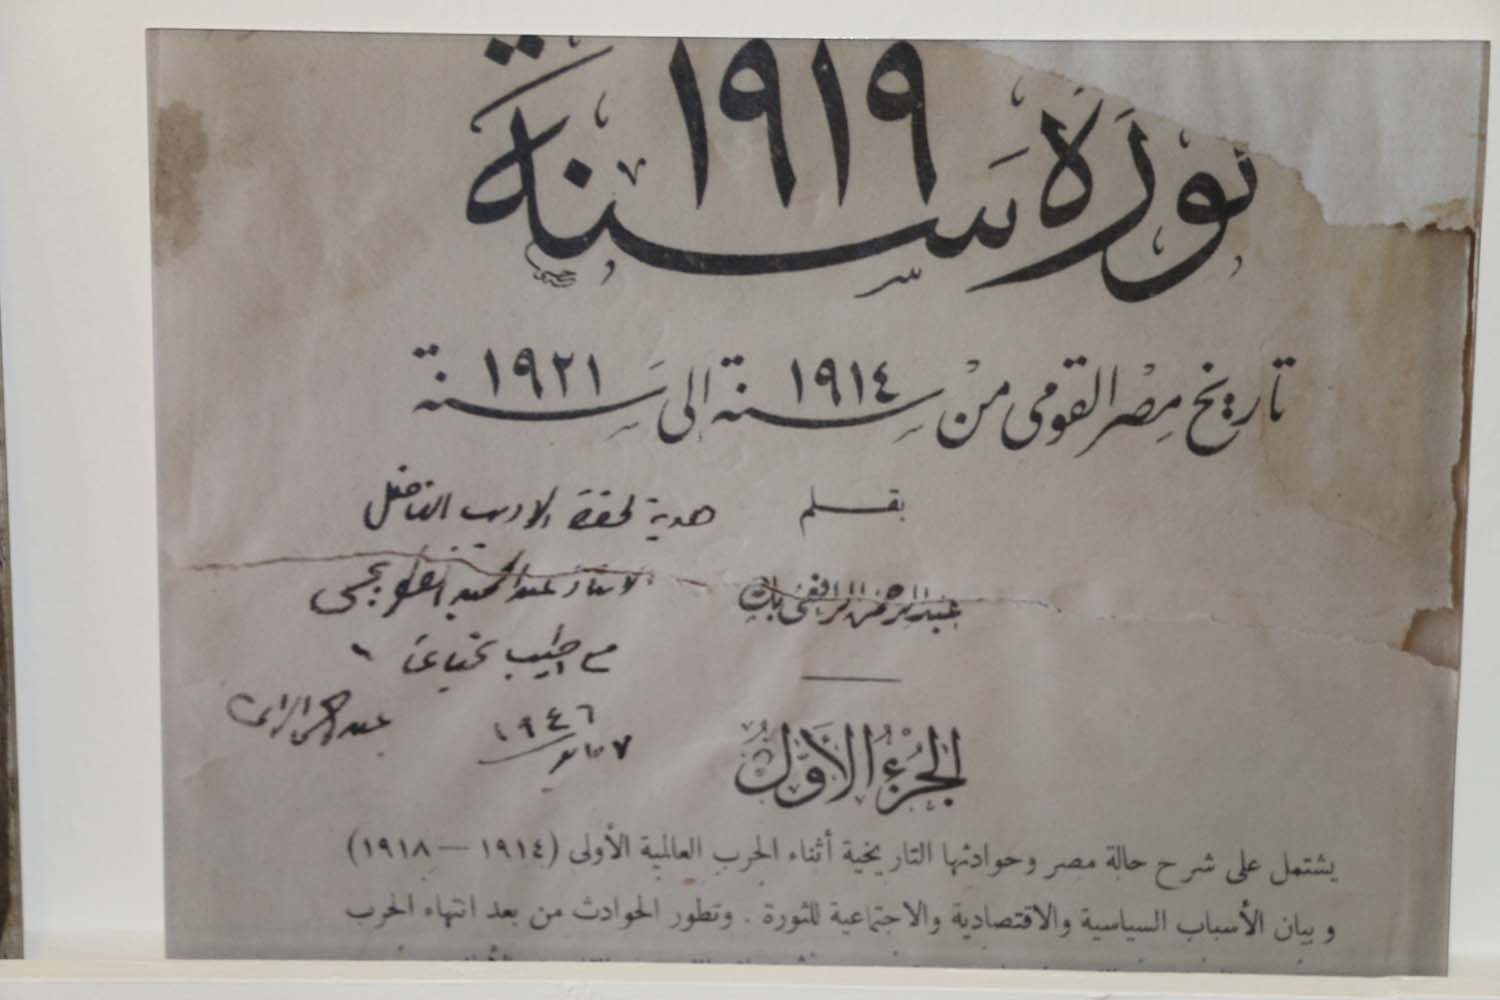 ثورة سنة ١٩١٩
تاريخ مصر القومى من سنة ١٩١٤ الى سنة ١٩٢١
بقلم
عبد الرحمن الرافعى بك
هدية لحضرة الاديب الفاضل
الاستاذ عبد الحميد
مع اطيب تحياتى
٧ مايو ١٩٤٦
عبد الرحمن الرافعى
الجزء الأول
يشتمل على شرح حالة مصر وحوادثها التاريخية أثناء الحرب العالمية الأولى (١٩١٤ — ١٩١٨)
وبيان الأسباب السياسية والاقتصادية والاجتماعية للثورة . وتطور الحوادث من بعد انتهاء الحرب